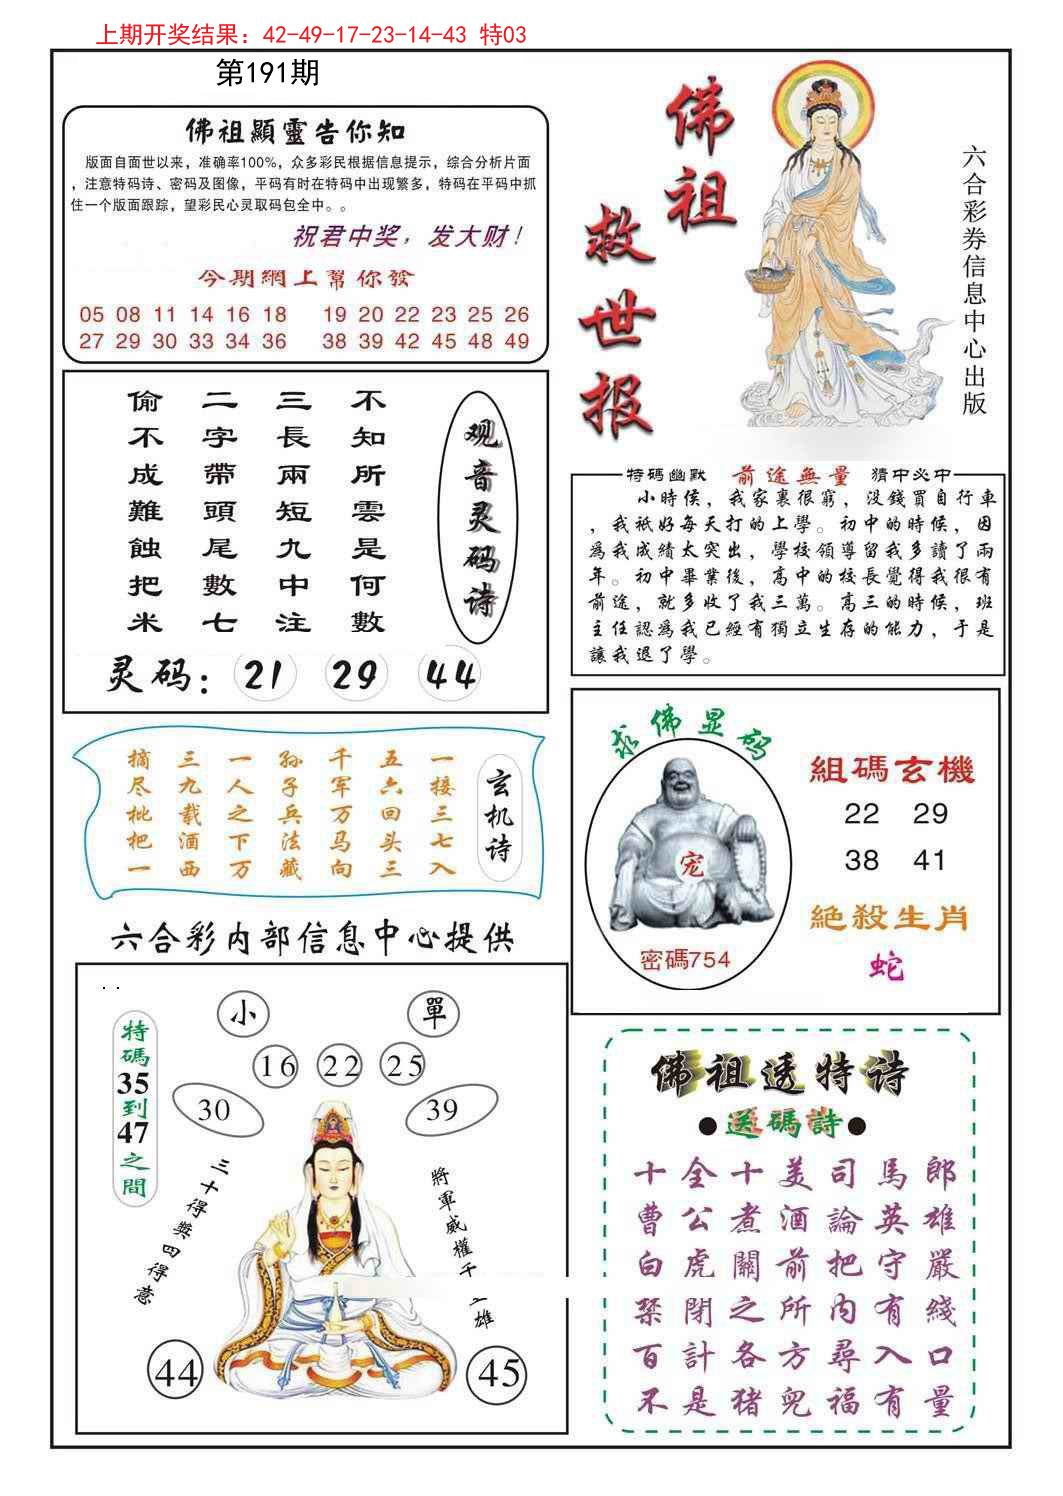 上期开奖结果：42-49-17-23-14-43 特03
第191期
佛祖顯靈告你知
版面自面世以来，准确率100%，众多彩民根据信息提示，综合分析片面
，注意特码诗、密码及图像，平码有时在特码中出现繁多，特码在平码中抓
住一个版面跟踪，望彩民心灵取码包全中。。
祝君中奖，发大财！
今期網上幫你發
05 08 11 14 16 18 19 20 22 23 25 26
27 29 30 33 34 36 38 39 42 45 48 49
佛祖
救世报
六合彩券信息中心出版
观音灵码诗
不知所雲是何數
三長兩短九中注
二字帶頭尾數七
偷不成難蝕把米
灵码：21 29 44
特码幽默 前途無量 猜中必中
小時侯，我家裏很窮，没錢買自行車
，我祇好每天打的上學。初中的時候，因
爲我成績太突出，學校領導留我多讀了兩
年。初中畢業後，高中的校長覺得我很有
前途，就多收了我三萬。高三的時候，班
主任認爲我已經有獨立生存的能力，于是
讓我退了學。
玄机诗
一接三七入
五六回头三
千军万马向
孙子兵法藏
一人之下万
三九载酒西
摘尽枇杷一
求佛显码
宠
密碼754
組碼玄機
22 29
38 41
絕殺生肖
蛇
六合彩内部信息中心提供
特碼35到47之間
小 單
16 22 25
30 39
三十得獎四得意
將軍威權千
雄
44 45
佛祖透特诗
●送碼詩●
十全十美司馬郎
曹公煮酒論英雄
白虎關前把守嚴
禁閉之所内有綫
百計各方尋入口
不是猪兜福有量